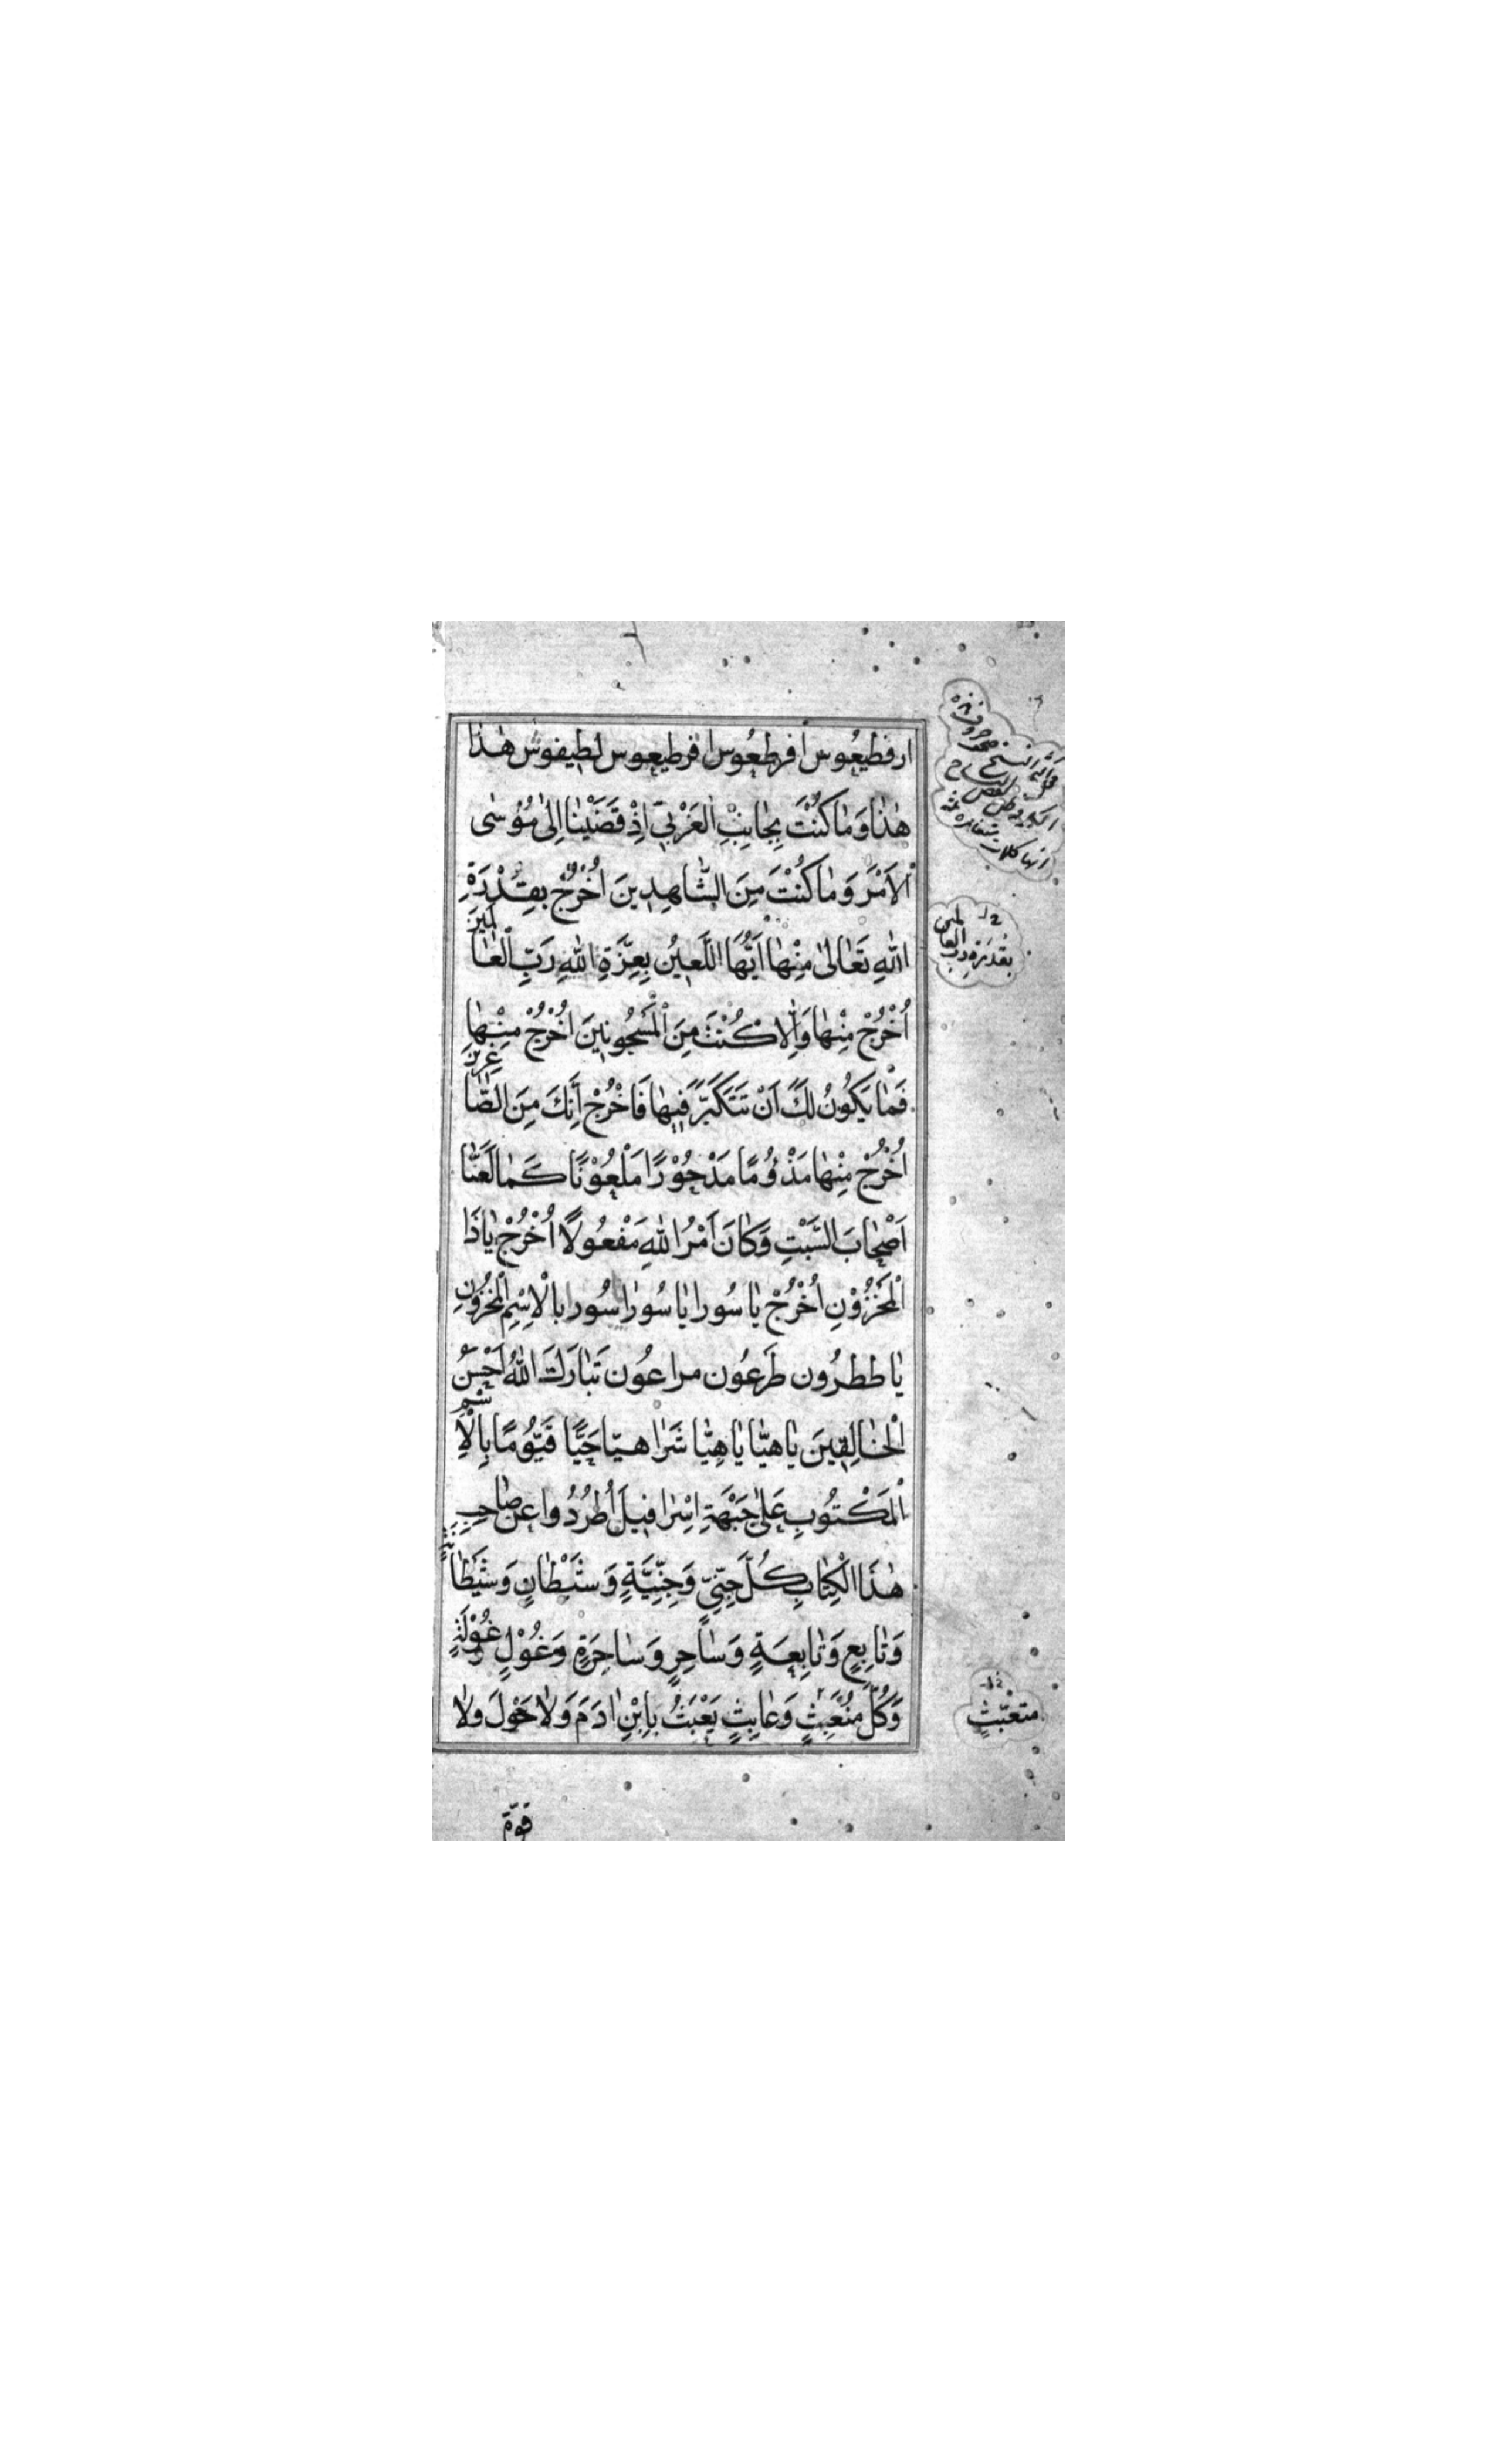 ارفطیعوس افرطعوس افرطیعوس لطیفوس هذا
هٰذٰا وَمٰا كُنْتَ بِجٰانِبِ الْغَرْبِيِّ اِذْ قَضَيْنٰا اِلیٰ مُوْسٰی
الْاَمْرَ وَ مٰا كُنْتَ مِنَ الشّٰاهِدِينَ اُخْرُجْ بِقُدْرَةِ
اللهِ تَعٰالیٰ مِنْهٰا اَيُّهَا اللَّعِيْنُ بِعِزَّةِ اللهِ رَبِّ الْعٰالَمِينَ
اُخْرُجْ مِنْهٰا وَاِلّٰا كُنْتَ مِنَ الْمَسْجُونِينَ اُخْرُجْ مِنْهٰا
فَمٰا يَكُونُ لَكَ اَنْ تَتَكَبَّرَ فِيهٰا فَاخْرُجْ اِنَّكَ مِنَ الصّٰاغِرِينَ
اُخْرُجْ مِنْهٰا مَذْؤُمًا مَدْحُوْرًا مَلْعُوْنًا كَمٰا لَعَنّٰا
اَصْحٰابَ السَّبْتِ وَكٰانَ اَمْرُ اللهِ مَفْعُولًا اُخْرُجْ يٰا ذَا
الْمَخْزُوْنِ اُخْرُجْ يٰا سُورا يٰا سُورٰا سُورا بِالْاِسْمِ الْمَخْزُونِ
يٰا ططرُون طَرعُون مراعُون تَبٰارَكَ اللهُ اَحْسَنُ
الْخٰالِقِينَ يٰا هيّٰا يٰا هِيّٰا شَرٰاهيّا حَيًّا قَيُّومًا بِالْاِسْمِ
الْمَكْتُوبِ عَلیٰ جَبْهَةِ اِسْرٰافِيلَ اُطْرُدُوا عَن صٰاحِبِ
هٰذَا الْكِتٰابِ كُلَّ جِنِّيٍّ وَجِنِّيَّةٍ وَ شَيْطٰانٍ وَ شَيْطٰانَةٍ
وَتٰابِعٍ وَتٰابِعَةٍ وَ سٰاحِرٍ وَ سٰاحِرَةٍ وَغُوْلٍ وَ غُوْلَةٍ
وَكُلَّ مُتَعَبِّثٍ وَ عٰابِثٍ يَعْبَثُ بِابْنِ اٰدَمَ وَلٰا حَوْلَ وَلٰا
بقُدرَةِ رب العالمین
متعبّثٍ
قوّة